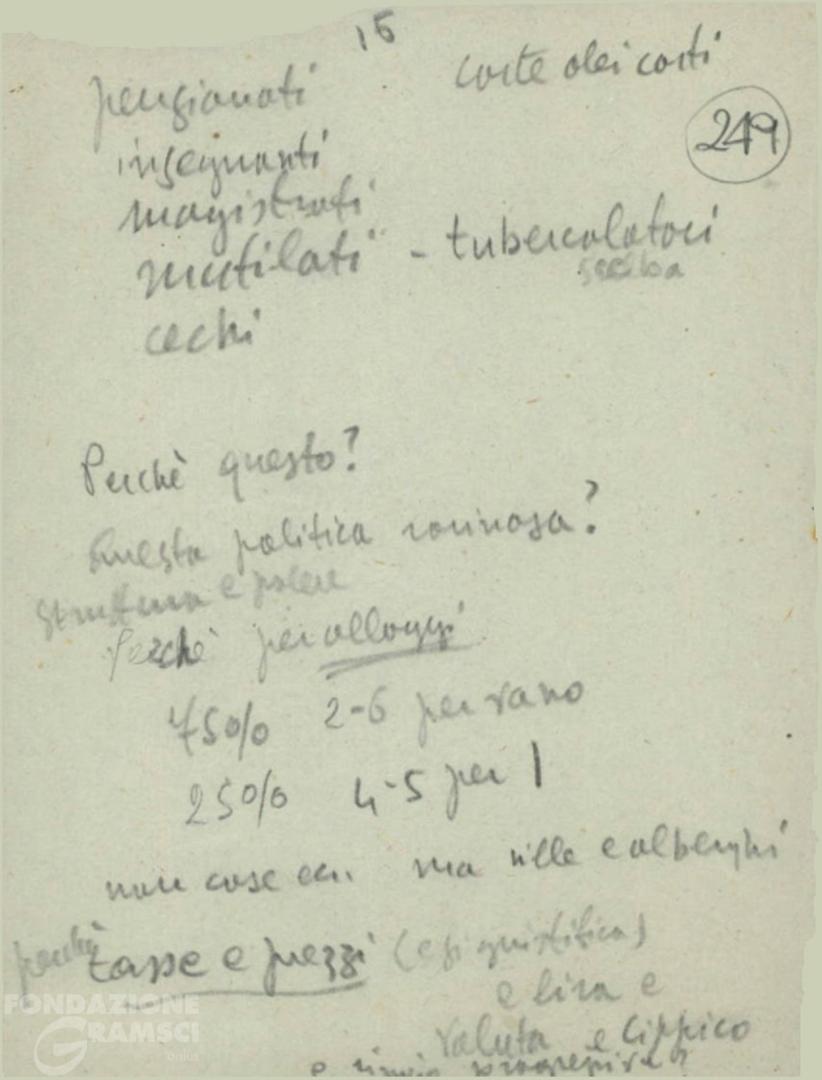 15
pensionati corte dei conti
249
insegnanti
magistrati
mutilati - tubercolotici
cechi
Perchè questo?
Questa politica rovinosa?
Struttura e potere
Perchè per alloggi
75% 2-6 per vano
25% 4-5 per 1
non case ecc. ma ville e alberghi
perchè tasse e prezzi (e si giustifica)
e lira e
valuta e Cippico
FONDAZIONE
GRAMSCI
onlus